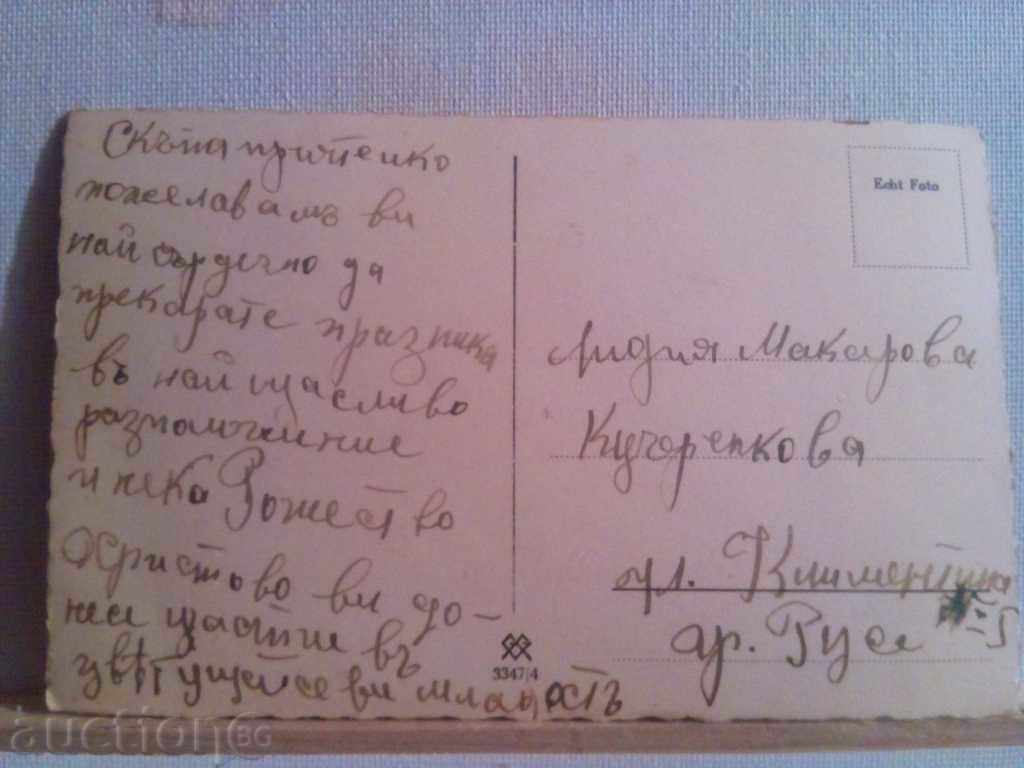 Скъпа приятелко
пожелавамъ ви
най сърдечно да
прекарате празника
въ най щасливо
разположение
и нека Рожество
Христово ви до-
несе щастие въ
цвѣтущейсе ви младость
Echt Foto
Лидия Макарова
Кучоренкова
ул. Климентина
гр. Русе
3347/4
auction BG